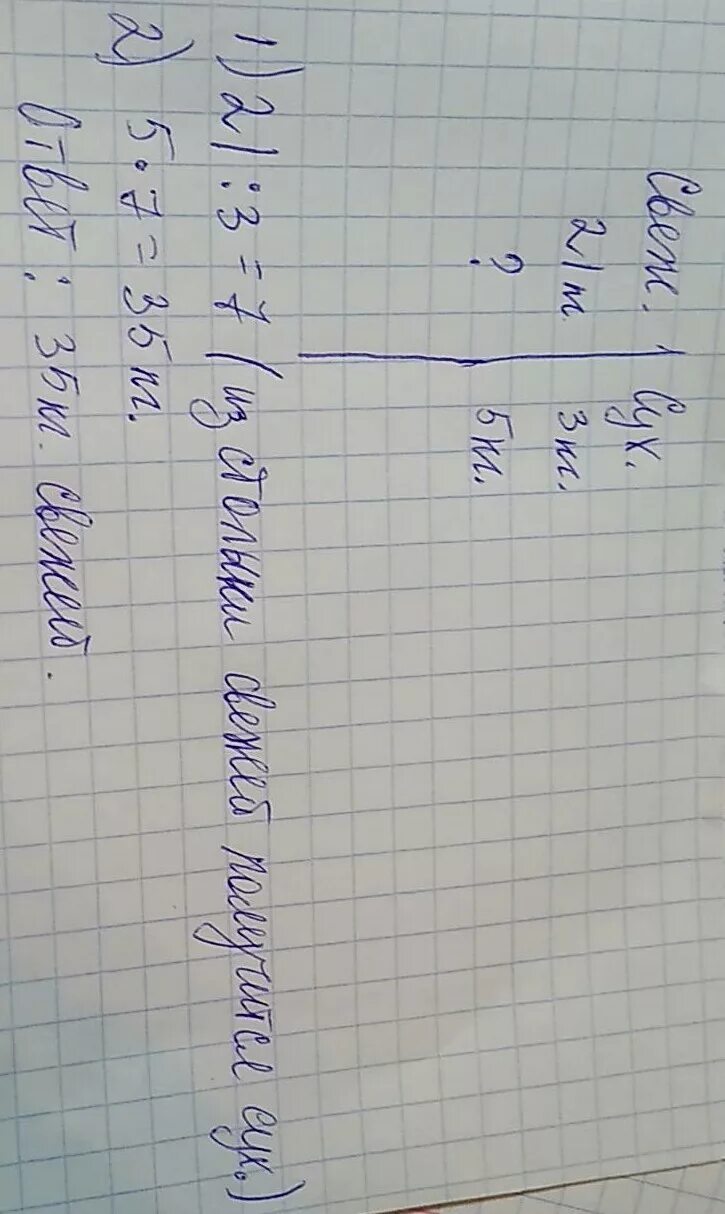 Свеж. | Сух.
21 т 3 т.
? 5 т.
1) 21 : 3 = 7 (из стольки свежей получится сух.)
2) 5 • 7 = 35 т.
Ответ : 35 т. свежей.